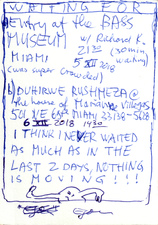 WAITING FOR
Entry at the BASS
MUSEUM w/ Richard K.
MIAMI 21:30 (20 min waiting)
5 XII 2018
(was super crowded)
DUHIRWE RUSHMEZA @
the house of Mariana Villegas
501 NE 69th MIAMI 33138-5628
6 XII 2018 1430
I THINK I NEVER WAITED
AS MUCH AS IN THE
LAST 2 DAYS, NOTHING
IS MOVING !!!